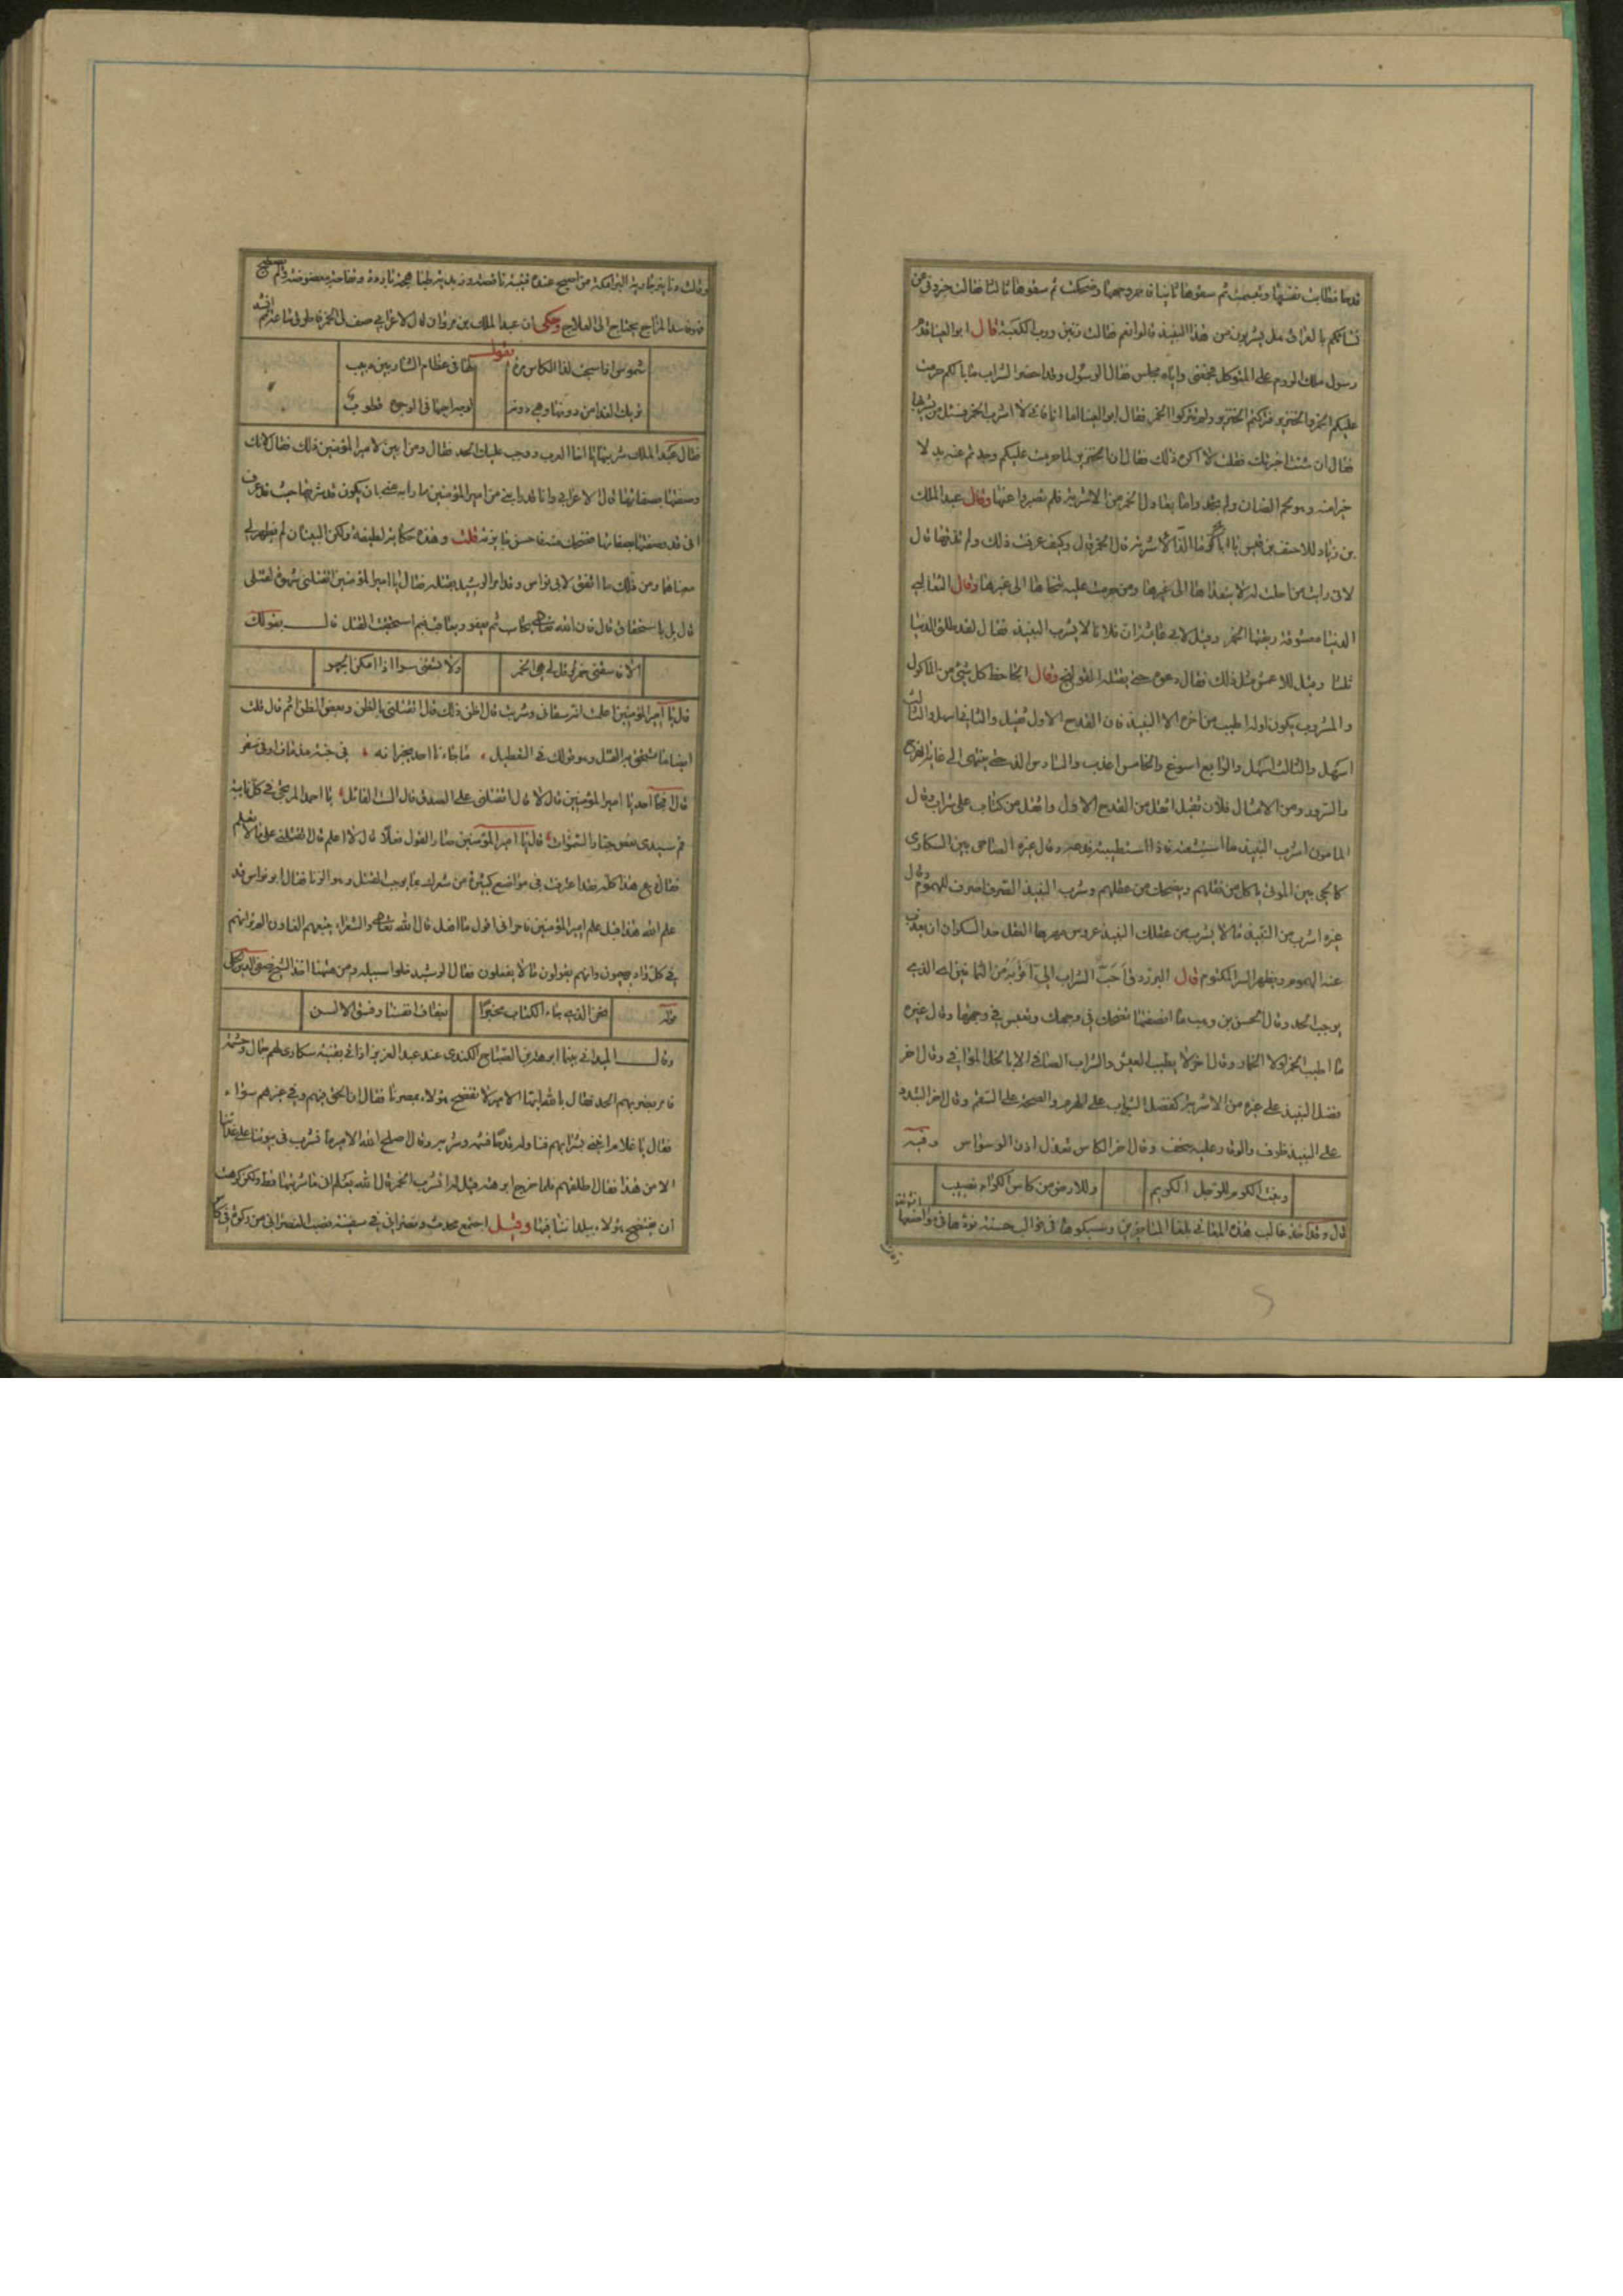 قدحا فطابت نفسها وتبسمت ثم سقوها ثانيا فاحمر وجهها وضحكت ثم سقوها ثالثا فقالت خبروني عن
نسائكم بالعراق هل يشربون من هذا النبيذ قالوا نعم فقالت زنين ورب الكعبة قال ابو العينا قدم
رسول ملك الروم على المتوكل فجمعني واياه مجلس فقال الرسول وقد احضر الشراب ما بالكم حرمت
عليكم الخمر والخنزير فتركتم الخنزير ولم تتركوا الخمر فقال ابو العينا اما انا فاني لا اشرب الخمر فسئل من يشربها
فقال ان شئت اخبرتك فقلت لا اكره ذلك فقال ان الخنزير لما حرمت عليكم وجدتم عنه بدلا
خيرا منه وهو لحم الضان ولم تجدوا ما يعادل الخمر من الاشربة فلم تصبروا عنها وقال عبد الملك
بن زياد للاحنف بن قيس يا ابا بحر ما الذ الاشربة قال الخمر قال وكيف عرفت ذلك ولم تذقها قال
لاني رايت من احلت له لا يتعداها الى غيرها ومن حرمت عليه تخطاها الى غيرها وقال الثعالبي
الدنيا معشوقة ريقها الخمر وقيل لابي فلانا لا يشرب النبيذ فقال لقد طلق الدنيا
ثلثا وقيل للاعمش مثل ذلك فقال دعوه حتى يقتله القولنج وقال الجاحظ كل شيء من الماكول
والمشروب يكون اوله اطيب من اخره الا النبيذ فان القدح الاول ثقيل والثاني والثالث
اسهل والثالث اسهل والرابع اسوغ والخامس اعذب والسادس الذ حتى ينتهي الى غاية الفرح
والسرور ومن الامثال فلان ثقيل اثقل من القدح الاول واثقل من كتاب على شراب وقال
المامون اشرب النبيذ ما استبشعته فاذا استطيبته فدعه وقال غيره الصاحي بين السكارى
كالحي بين الموتى ياكل من نقلهم ويضحك من عقلهم وشرب النبيذ الصرف للهموم وقال
غيره اشرب من النبيذ ما لا يشرب من عقلك النبيذ عروس مهرها العقل حد السكران ان يعزب
عنه الهموم ويظهر السر المكتوم قال احب الشراب الي
يوجب الحد وقال الحسن بن وهب ما انصفتها تضحك في وجهك وتعبس في وجهها وقال غيره
ما اطيب الخمر لولا الخمار وقال اخر لا يطيب العيش والشراب الصافي الا بالخل الموافي وقال اخر
فضل النبيذ على غيره من الاشربة كفضل الشباب على الهرم والصحة على السقم وقال اخر
على النبيذ ظرف والوقار عليه سخف وقال اخر الكاس تعدل الوسواس
وبنت الكروم للرجل الكريم وللارض من كاس الكرام نصيب
قال وقد اخذ غالب هذه المعاني بلغا المتاخرين وسبكوها في قوالب حسنة
من اصبح عنده
فاسد المزاج يحتاج الى العلاج وحكى ان عبد الملك بن مروان قال لاعرابي صف لي الخمر
يقول
شموس اذا شجت لدا الكاس مرة لها في عظام الشاربين دبيب
تريك القذا من دونها وهي دونه لوجه اخيها في الوجوه قطوب
فقال عبد الملك شربتها يا اخا العرب ووجب عليك الحد فقال ومن اين لامير المؤمنين ذلك فقال لانك
وصفتها بصفاتها قال الاعرابي وانا قد رابني من امير المؤمنين ما رابه مني بان يكون قد شربها حيث قد عرف
اني قد وصفتها بصفاتها فضحك منه واحسن جايزته قلت وهذه حكاية لطيفة ولكن البيتان لم يظهر لي
معناهما ومن ذلك ما اتفق لابي نواس وقد امر الرشيد بقتله فقال يا امير المؤمنين اتقتلني شهوة لقتلي
قال بل باستحقاق قال فان الله تعالى يحاسب ثم يعفو ويعاقب فبم استحقيت القتل قال بقولك
الا فاسقني خمرا وقل لي هي الخمر ولا تسقني سرا اذا امكن الجهر
قال يا امير المؤمنين اعلمت انه سقاني وشربت قال اظن ذلك قال اتقتلني بالظن وبعض الظن اثم قال قلت
ايضا ما تستحق به القتل وهو قولك في التعطيل ما جاءنا احد يخبر انه في جنة مذ مات او في سقر
قال افجآ احد يا امير المؤمنين قال لا قال اتقتلني على الصدق قال الست القائل يا احمد المرتجى في كل نايبة
قم سيدي نعص جبار السموات قال يا امير المؤمنين صار القول فعلا قال لا اعلم قال اتقتلني على ما لا تعلم
فقال دع هذا كله فقد اعترفت في مواضع كثيرة من شعرك بما يوجب القتل وهو الزنا فقال ابو نواس قد
علم الله هذا قبل علم امير المؤمنين فاخبر اني اقول ما لا افعل قال الله تعالى والشعراء يتبعهم الغاوون الم تر انهم
في كل واد يهيمون وانهم يقولون ما لا يفعلون فقال الرشيد خلوا سبيله ومن هنا اخذ الشيخ صفي الدين الحلي
قوله نحن الذي جاء الكتاب مخبرا بعفاف انفسنا وفسق الالسن
وقال الميداني بينما ابرهة بن الصباح الكندي عند عبد العزيز اذ اتي بفتية سكارى
فامر بضربهم الحد فقال بالله ايها الامير لا تفضح هؤلاء بمصرنا فقال ان الحق فيهم وفي غيرهم سواء
فقال يا غلام اتني بشرابهم فناوله قدحا فشربه وقال اصلح الله الامير ما نشرب في بيوتنا على غدائنا
الا من هذا فقال اطلقهم فلما خرج ابرهة قيل له اتشرب الخمر قال الله يعلم اني ما شربتها قط ولكن كرهت
ان يفتضح هؤلاء ببلد انا فيها وقيل اجتمع محدث ونصراني في سفينة فصب النصراني من ركوة في كاس